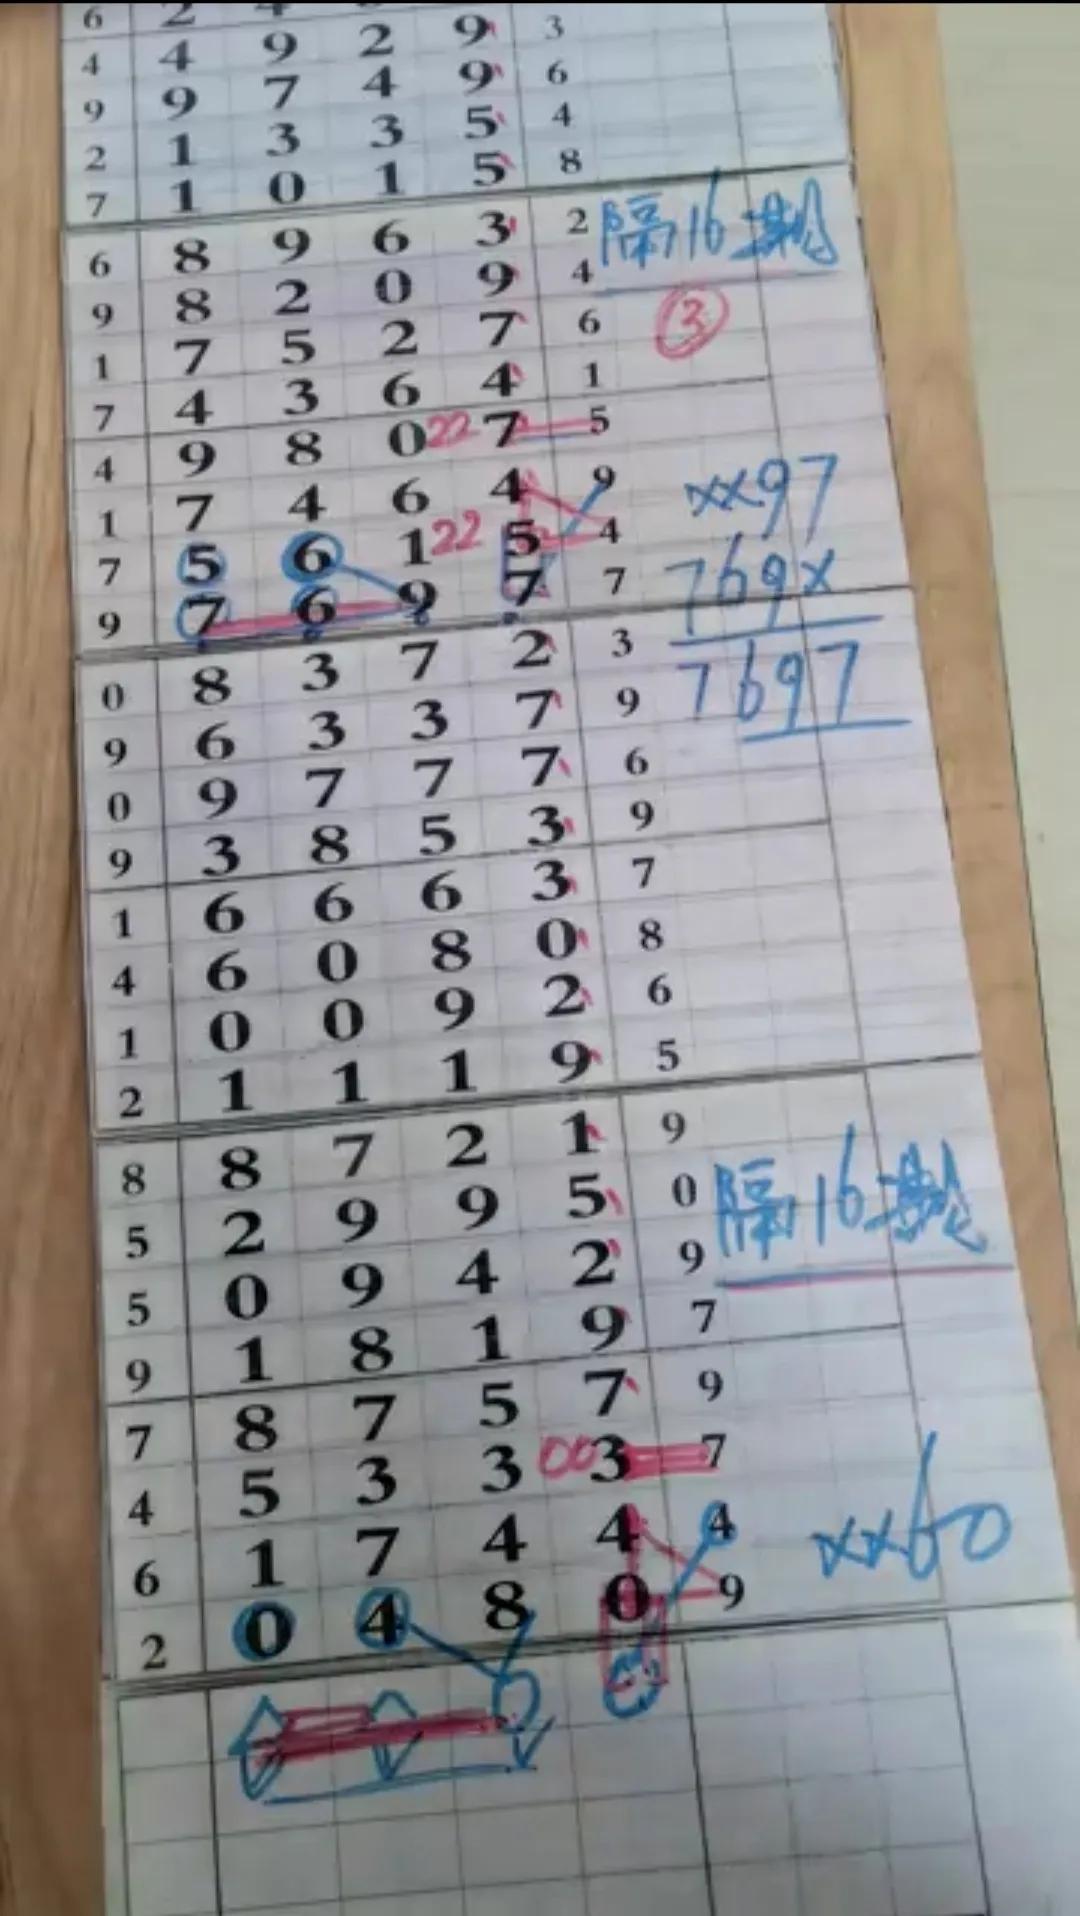 6 2
4 4 9 2 9 3
9 9 7 4 9 6
2 1 3 3 5 4
7 1 0 1 5 8
6 8 9 6 3 2 隔16期
9 8 2 0 9 4
1 7 5 2 7 6 ③
7 4 3 6 4 1
4 9 8 0 22 7 5
1 7 4 6 4 9 xx97
7 5 6 1 22 5 4 769x
9 7 6 9 7 7
0 8 3 7 2 3 7697
9 6 3 3 7 9
0 9 7 7 7 6
9 3 8 5 3 9
1 6 6 6 3 7
4 6 0 8 0 8
1 0 0 9 2 6
2 1 1 1 9 5
8 8 7 2 1 9
5 2 9 9 5 0 隔16期
5 0 9 4 2 9
9 1 8 1 9 7
7 8 7 5 7 9
4 5 3 3 00 3 7
6 1 7 4 4 4 xx60
2 0 4 8 0 9